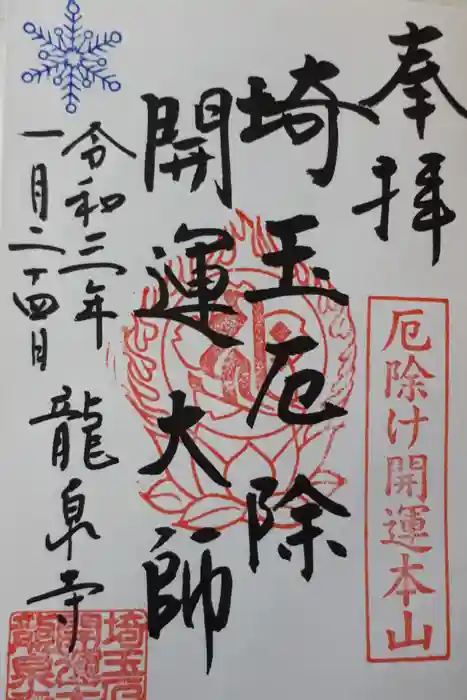 奉拝
厄除け開運本山
埼玉厄除
開運大師
令和三年
一月二十四日
龍泉寺
埼玉厄
開運大
龍泉